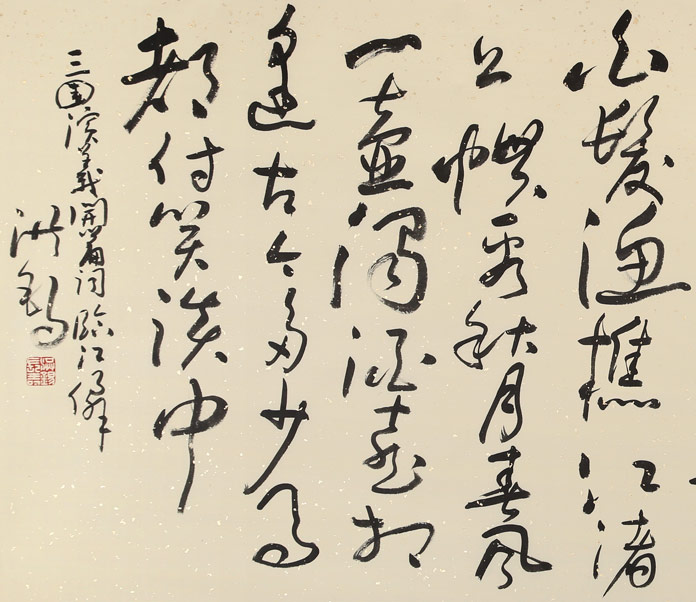 白髮漁樵江渚
上慣看秋月春風
一壺濁酒喜相
逢古今多少事
都付笑談中
三國演義開篇詞臨江僊
洪